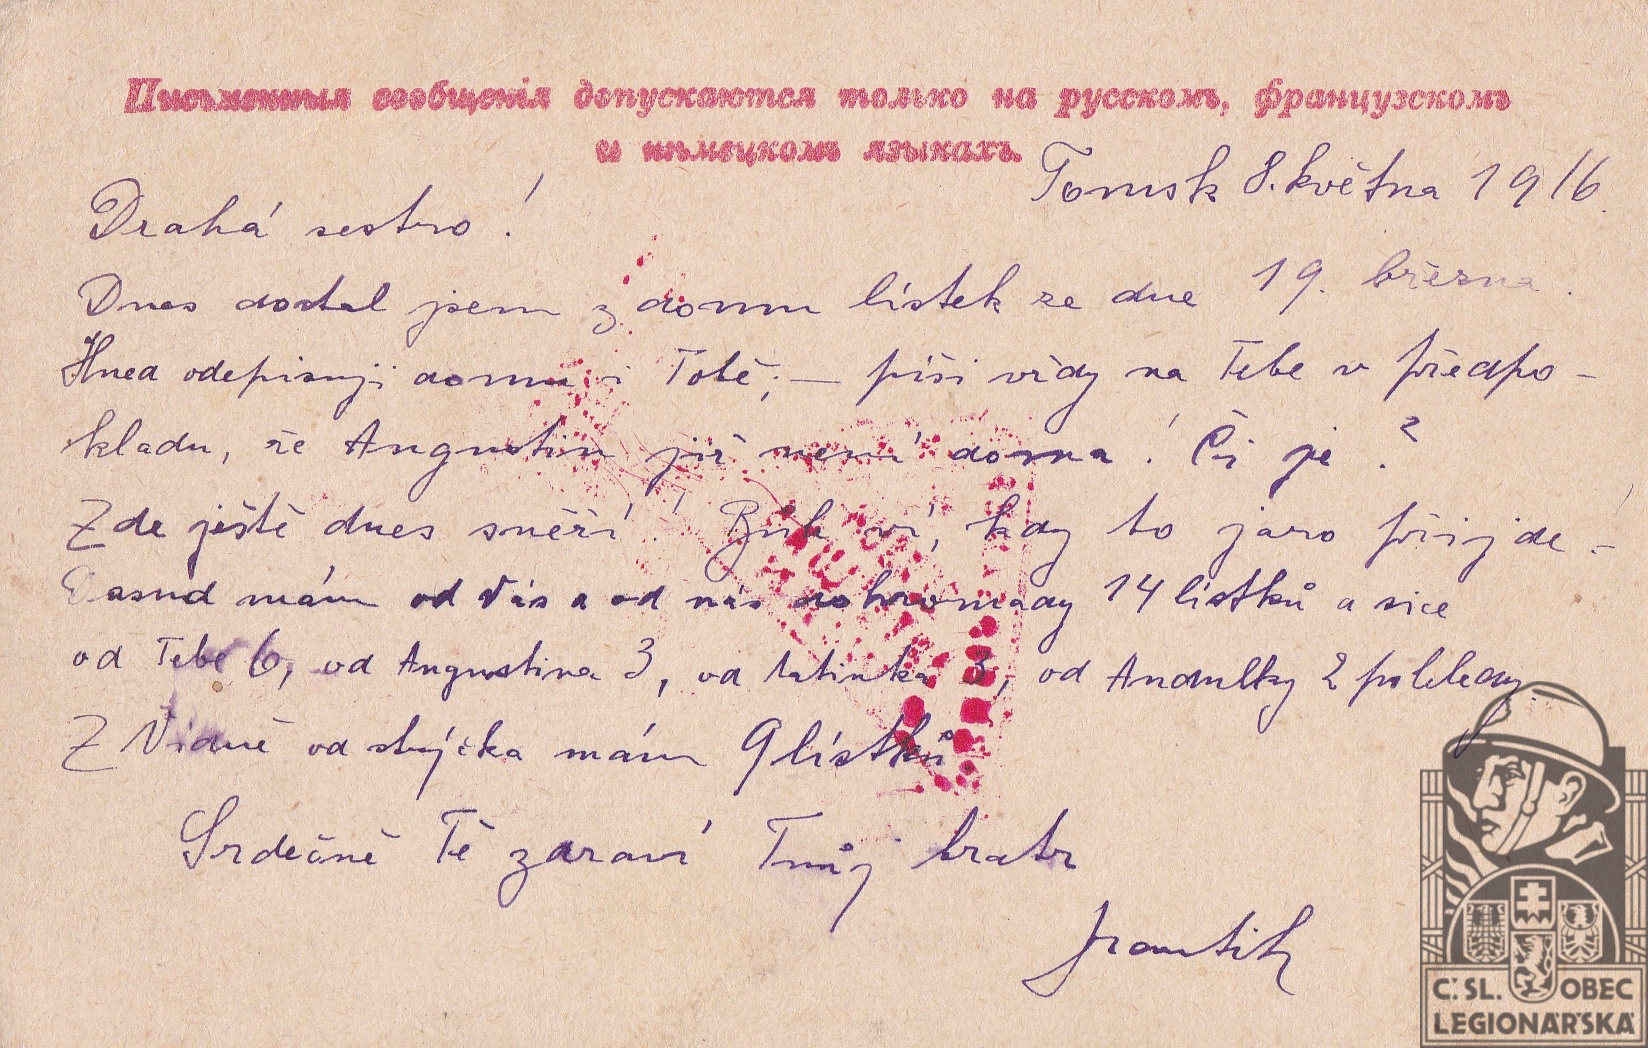 Письменныя сообщенія допускаются только на русскомъ, французскомъ
и нѣмецкомъ языкахъ.
Tomsk 8. května 1916.
Drahá sestro!
Dnes dostal jsem z domu lístek ze dne 19. března.
Hned odepisuji domů i Tobě; — píši vždy na Tebe v předpo-
kladu, že Augustin již není doma! Či je?
Zde ještě dnes sněží! Bůh ví, kdy to jaro přijde! –
Dosud mám od Vás a od nás dohromady 14 lístků a sice
od Tebe 6, od Augustina 3, od tatínka 3, od Andulky 2 pohledy.
Z Vídně od strýčka mám 9 lístků
Srdečně Tě zdraví Tvůj bratr
František
Č. SL. OBEC
LEGIONÁŘSKÁ